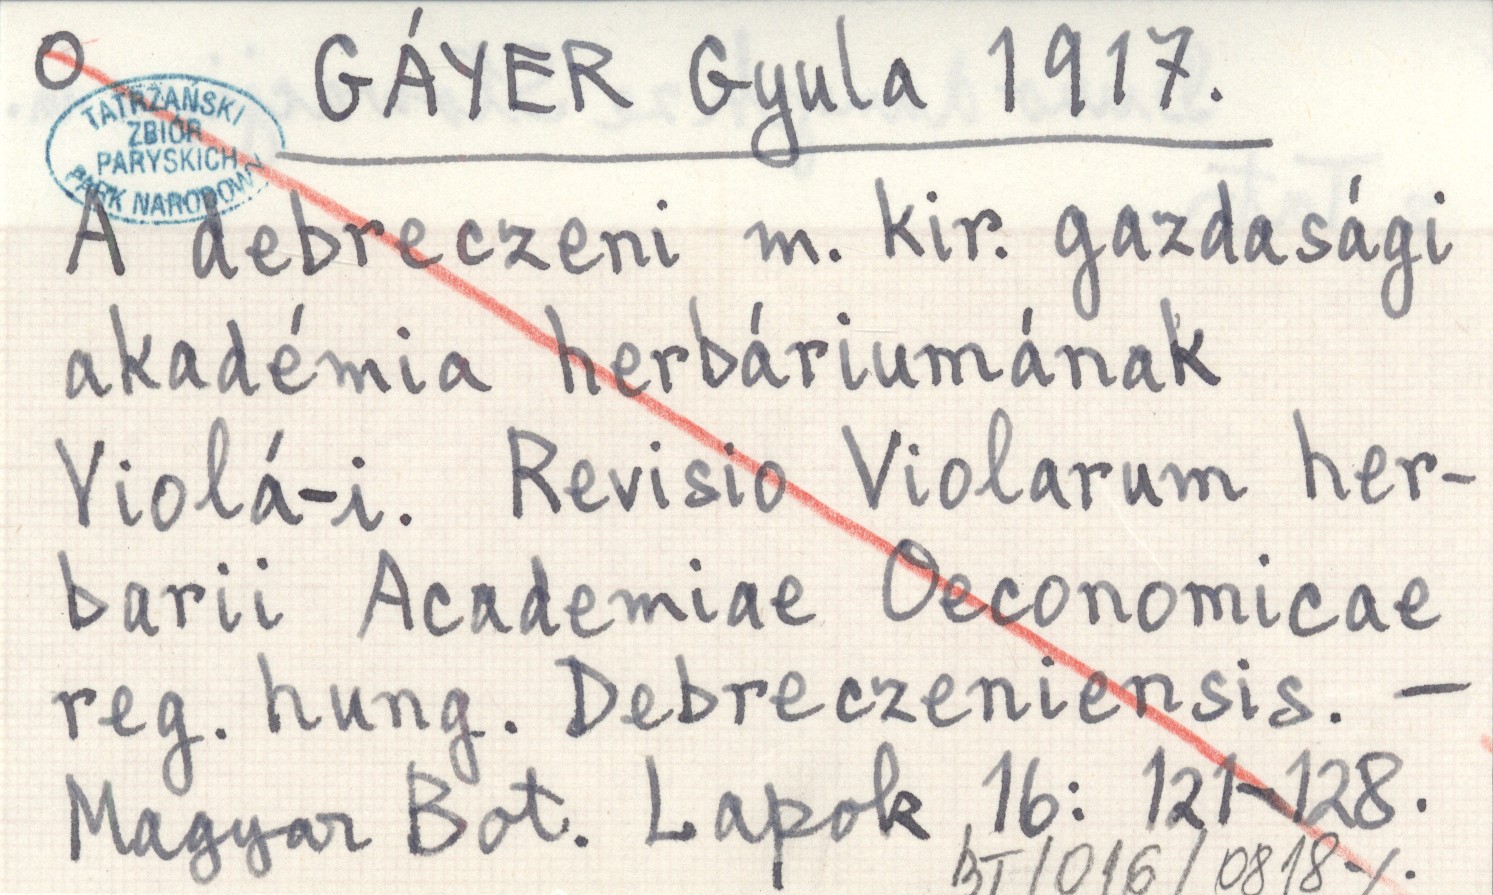 O GÁYER Gyula 1917.
TATRZAŃSKI
ZBIÓR
PARYSKICH
PARK NARODOWY
A debreczeni m. kir. gazdasági
akadémia herbáriumának
Violá-i. Revisio Violarum her-
barii Academiae Oeconomicae
reg. hung. Debreczeniensis. —
Magyar Bot. Lapok 16: 121-128.
BT/016/0818